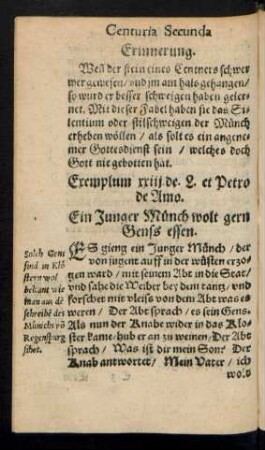 Centuria Secunda
Erinnerung.
Weñ der stein eines Centners schwer
wer gewesen / vnd jm am hals gehangen /
so wurd er besser schweigen haben geler-
net. Mit dieser Fabel haben sie das Si-
lentium oder stilschweigen der Münch
erheben wöllen / als solt es ein angene-
mer Gottesdienst sein / welches doch
Gott nie gebotten hat.
Exemplum xxiij de. L. et Petro
de Amo.
Ein Junger Münch wolt gern
Genss essen.
ES gieng ein Junger Münch / der
von jugent auff in der wüsten erzo-
gen ward / mit seinem Abt in die Stat /
vnd sahe die Weiber bey dem tantz / vnd
forschet mit vleiss von dem Abt was es
weren / Der Abt sprach / es sein Gens.
Als nun der Knabe wider in das Klo-
ster kame / hub er an zu weinen / Der Abt
sprach / Was ist dir mein Son? Der
Knab antwortet / Mein Vater / ich
wolt
Solch Gens
sind in Klö
stern wol
bekant wie
man aus dē
schreibē des
Münchs võ
Regenspurg
sihet.